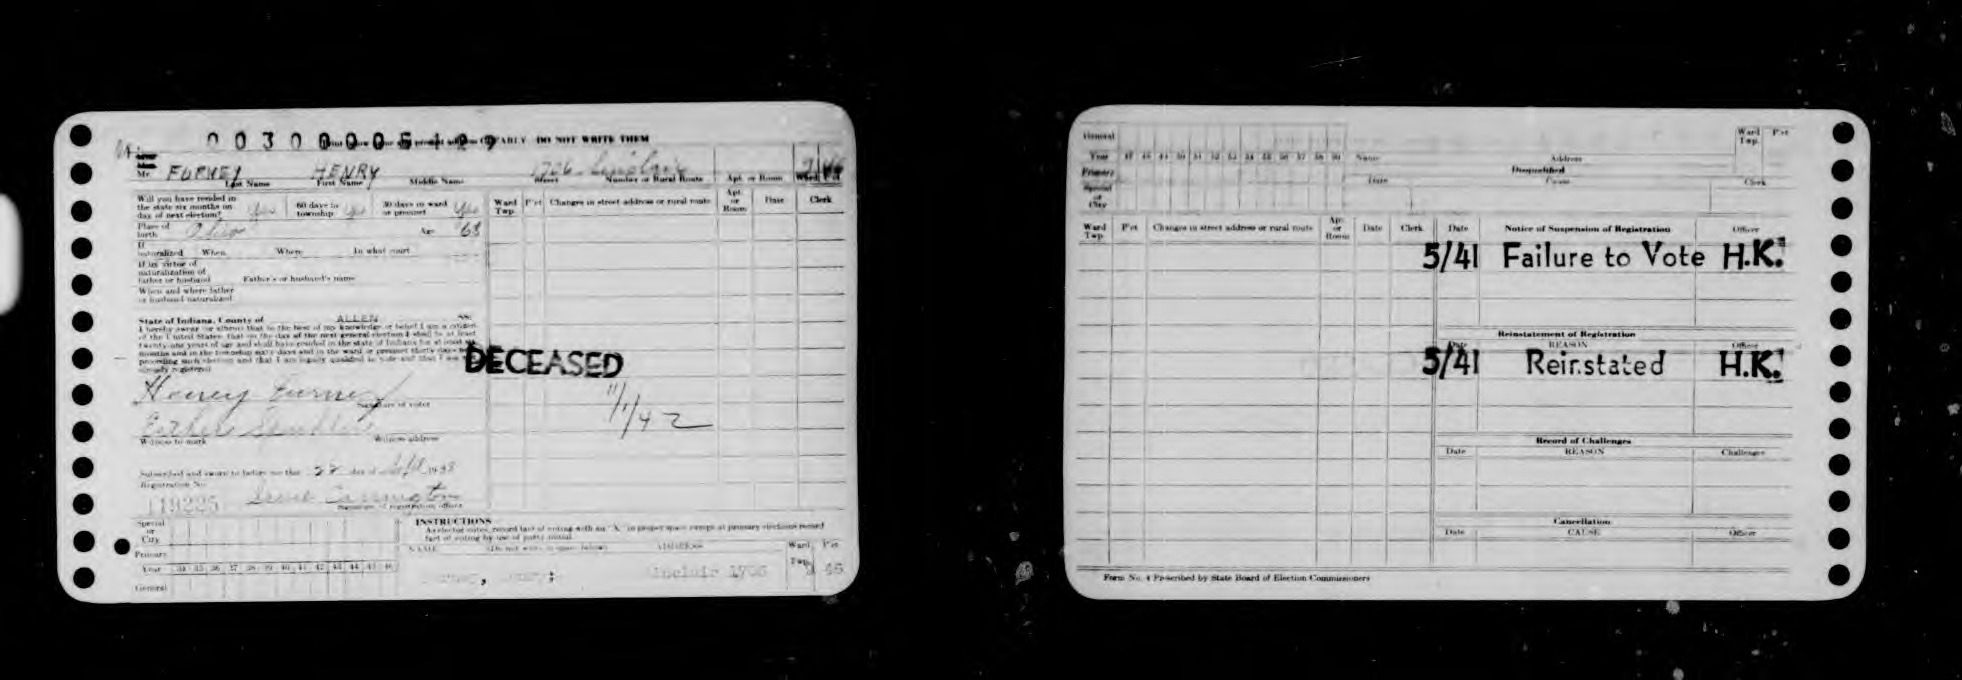 DO NOT WRITE THEM
Mr. FURNEY HENRY 1726 Sinclair
Last Name First Name Middle Name Street Number or Rural Route Apt. or Room Ward Pct
Will you have resided in the state six months on day of next election? Yes 60 days in township Yes 30 days in ward or precinct Yes
Ward Twp. P'ct Changes in street address or rural route Apt. or Room Date Clerk
Place of birth Ohio Age 68
If naturalized When Where In what court
If by virtue of naturalization of father or husband Father's or husband's name
When and where father or husband naturalized
State of Indiana, County of ALLEN SS:
I hereby swear (or affirm) that to the best of my knowledge or belief I am a citizen
of the United States, that on the day of the next general election I shall be at least
twenty-one years of age and shall have resided in the state of Indiana for at least six
months and in the township sixty days and in the ward or precinct thirty days
preceding such election and that I am legally qualified to vote and that I am
already registered
DECEASED
11/1/42
Henry Furney
Signature of voter
Esther
Witness to mark Witness address
Subscribed and sworn to before me this 28 day of Sept 1938
Registration No.
119225 Carrington
Signature of registration officer
Special or City
Primary
Year 34 35 36 37 38 39 40 41 42 43 44 45 46
General
INSTRUCTIONS
As elector votes, record fact of voting with an "X" in proper space except at primary elections record
fact of voting by use of party initial.
NAME (Do not write in space below) ADDRESS Ward Twp. P'ct
Sinclair 1726 46
General
Year 47 48 49 50 51 52 53 54 55 56 57 58 59
Primary
Special or City
Name Address Ward Twp. P'ct
Disqualified
Date Cause Clerk
Ward Twp. P'ct Changes in street address or rural route Apt. or Room Date Clerk
Date Notice of Suspension of Registration Officer
5/41 Failure to Vote H.K.
Reinstatement of Registration
Date REASON Officer
5/41 Reinstated H.K.
Record of Challenges
Date REASON Challenger
Cancellation
Date CAUSE Officer
Form No. 4 Prescribed by State Board of Election Commissioners